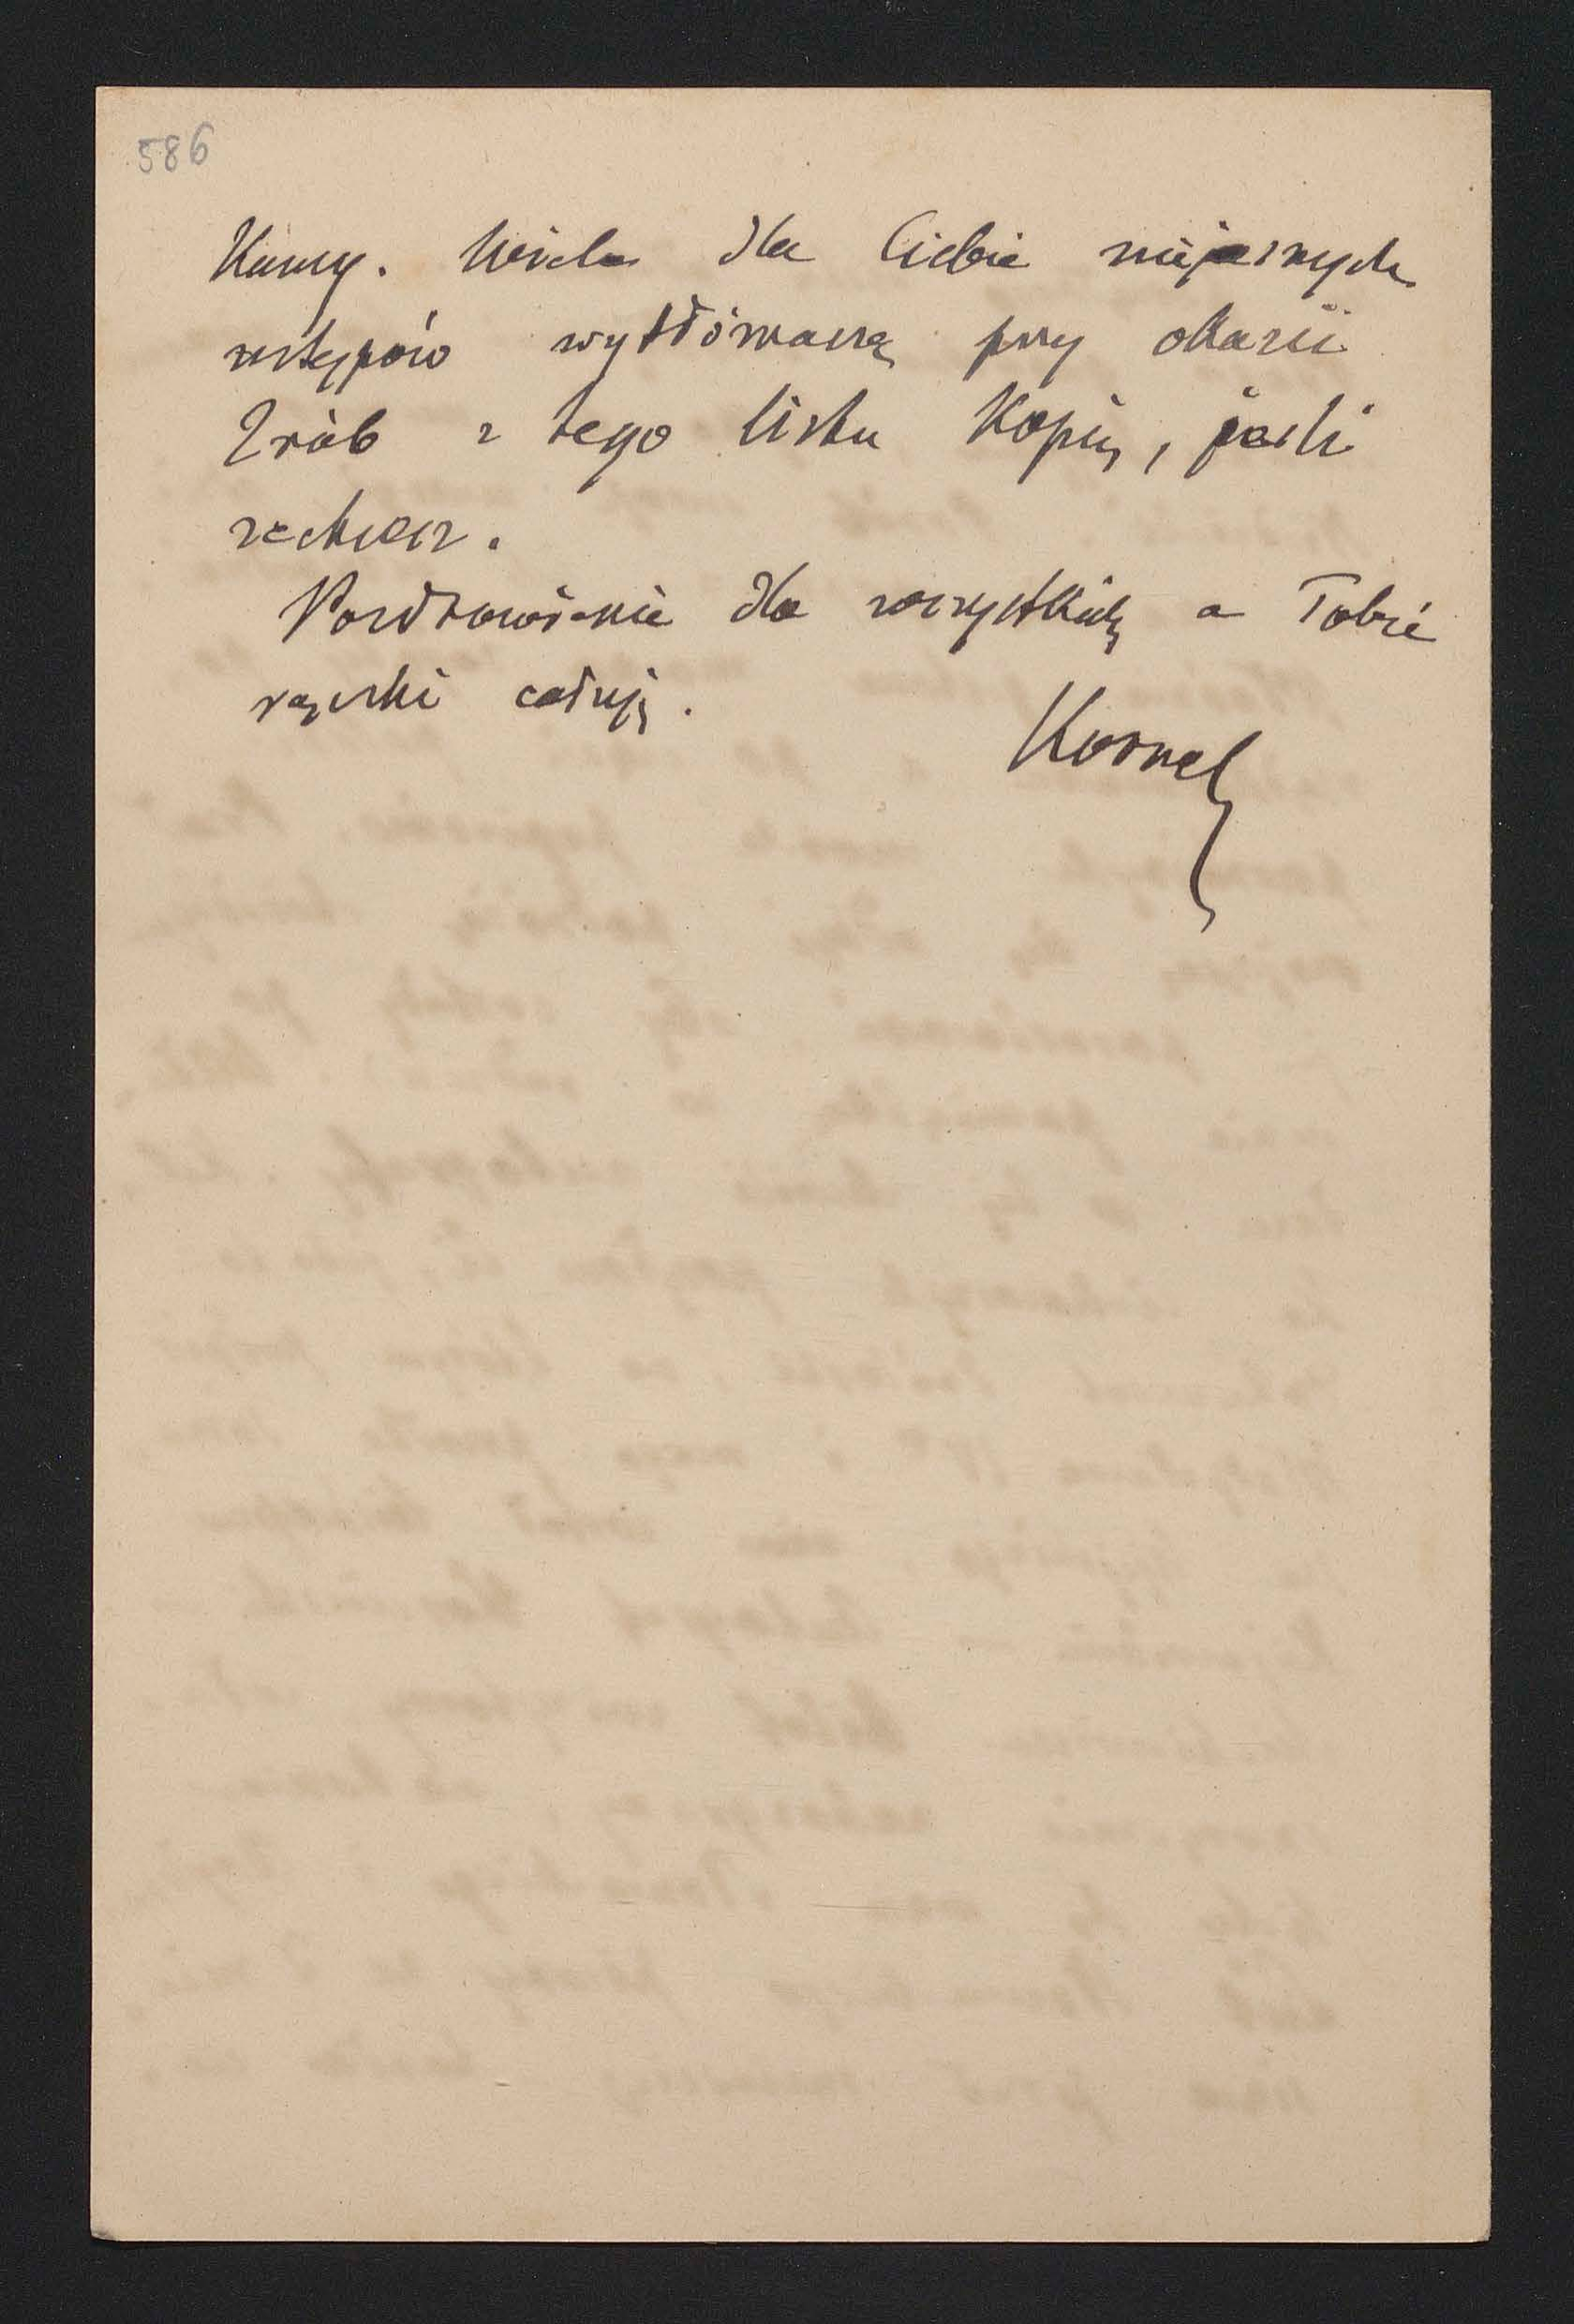 586
Kamy. Wiele dla Ciebie niejasnych
ustępów wytłómaczą przy okazii
Zrób z tego listu kopię, jeśli
zechcesz.
Pozdrowienie dla wszystkich, a Tobie
rączki całuję.
Kornel